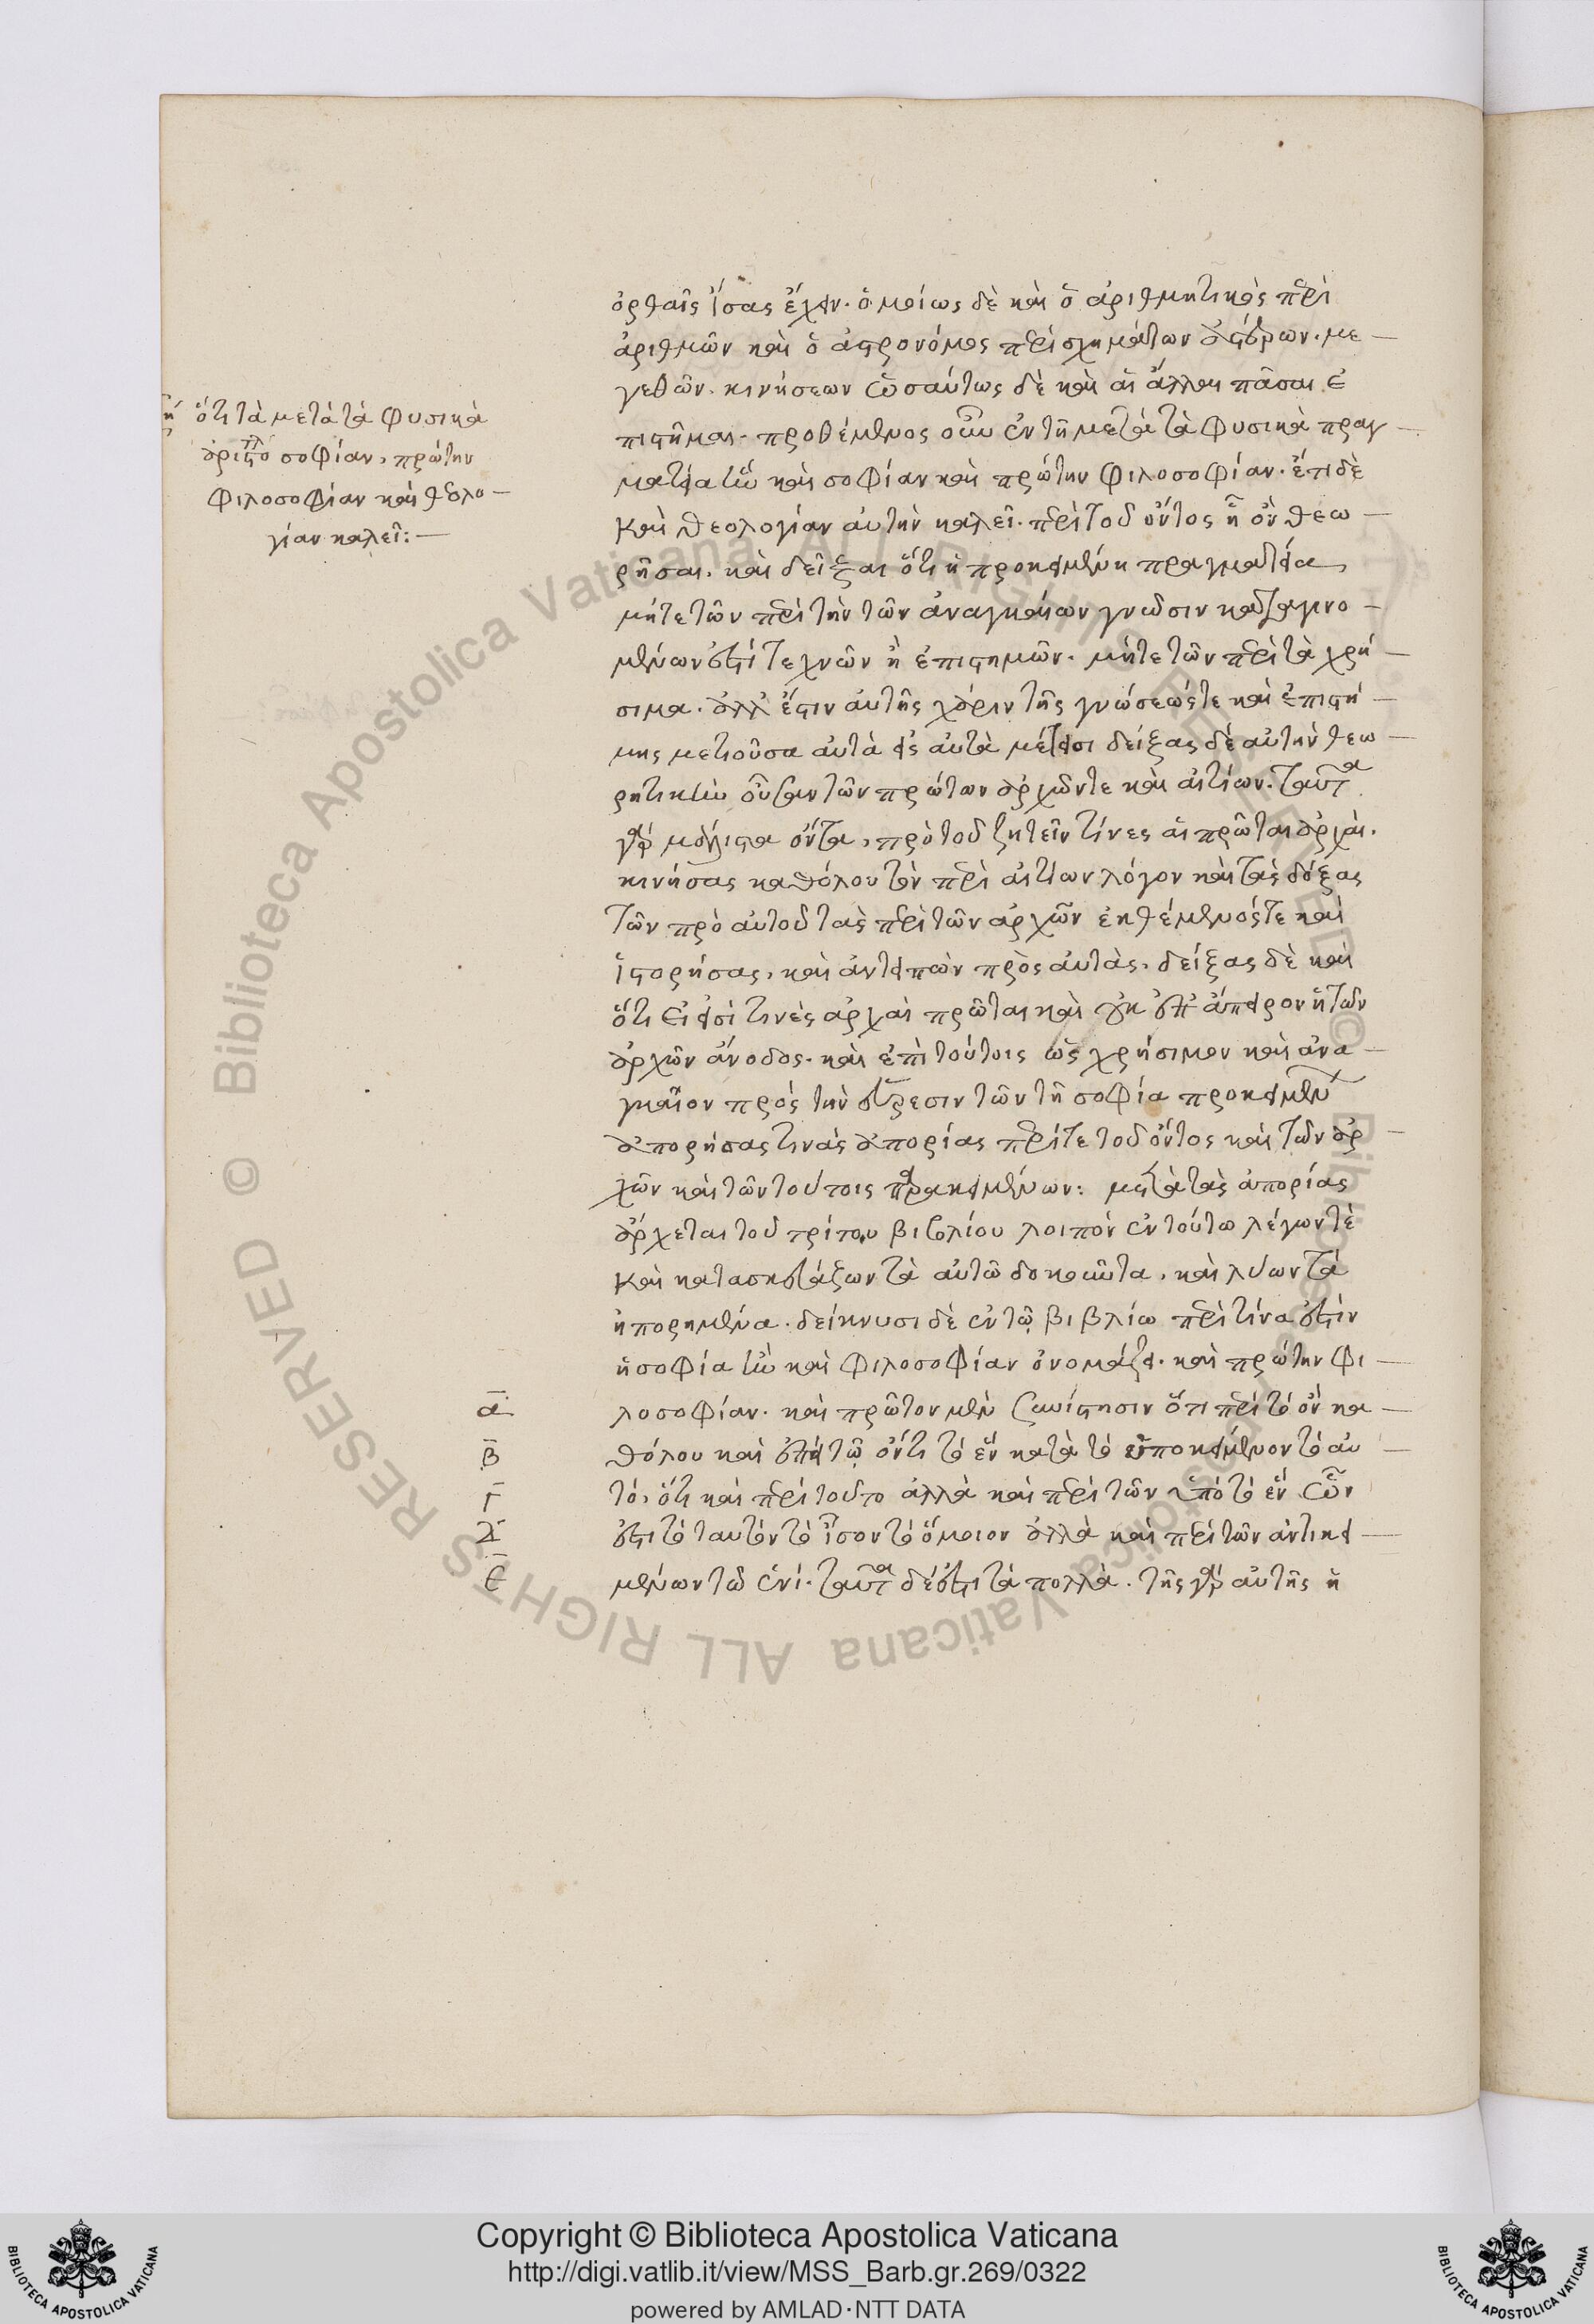 ὀρθαῖς ἴσας ἔχειν· ὁμοίως δὲ καὶ ὁ ἀριθμητικὸς περὶ
ἀριθμῶν καὶ ὁ ἀστρονόμος περὶ σχημάτων ἀστέρων· με-
γεθῶν· κινήσεων ὡσαύτως δὲ καὶ αἱ ἄλλαι πᾶσαι ἐ
πιστῆμαι· προθέμενος οὖν ἐν τῆ μετὰ τὰ φυσικὰ πραγ-
ματεία ἣν καὶ σοφίαν καὶ πρώτην φιλοσοφίαν· ἔτι δὲ
καὶ θεολογίαν αὐτὴν καλεῖ· περὶ τοῦ ὄντος ἧ ὂν θεω-
ρῆσαι· καὶ δεῖξαι ὅτι ἡ προκειμένη πραγματεία
μήτε τῶν περὶ τὴν τῶν ἀναγκαίων γνῶσιν καταγινο-
μένων ἐστὶ τεχνῶν ἢ ἐπιστημῶν· μήτε τῶν περὶ τὰ χρή-
σιμα· ἀλλ' ἔστιν αὐτῆς χάριν τῆς γνώσεώς τε καὶ ἐπιστή-
μης μετιοῦσα αὐτὰ εἰς αὐτὰ μέτεισι δείξας δὲ αὐτὴν θεω-
ρητικὴν οὖσαν τῶν πρώτων ἀρχῶν τε καὶ αἰτίων· ταῦτα
γὰρ μάλιστα ὄντα, πρὸ τοῦ ζητεῖν τίνες αἱ πρῶται ἀρχαί·
κινήσας καθόλου τὸν περὶ αἰτίων λόγον καὶ τὰς δόξας
τῶν πρὸ αὐτοῦ τὰς περὶ τῶν ἀρχῶν ἐκθέμενός τε καὶ
ἱστορήσας, καὶ ἀντειπὼν πρὸς αὐτάς, δείξας δὲ καὶ
ὅτι εἰσί τινὲς ἀρχαὶ πρῶται καὶ οὐκ ἐπ' ἄπειρον ἡ τῶν
ἀρχῶν ἄνοδος· καὶ ἐπὶ τούτοις ὡς χρήσιμον καὶ ἀνα-
γκαῖον πρὸς τὴν εὕρεσιν τῶν τῆ σοφία προκειμένων
ἀπορήσας τινὰς ἀπορίας περί τε τοῦ ὄντος καὶ τῶν ἀρ-
χῶν καὶ τῶν τούτοις παρακειμένων: μετὰ τὰς ἀπορίας
ἄρχεται τοῦ τρίτου βιβλίου λοιπὸν ἐν τούτω λέγων τὲ
καὶ κατασκευάζων τὰ αὐτῶ δοκοῦντα, καὶ λύων τὰ
ἠπορημένα· δείκνυσι δὲ ἐν τῷ βιβλίω περὶ τίνα ἐστὶν
ἡ σοφία ἣν καὶ φιλοσοφίαν ὀνομάζει· καὶ πρώτην φι-
λοσοφίαν· καὶ πρῶτον μὲν συνίστησιν ὅτι περὶ τὸ ὂν κα-
θόλου καὶ ἐπεὶ τῷ ὄντι τὸ ἓν κατὰ τὸ ὑποκείμενον τὸ αυ-
τό, ὅτι καὶ περὶ τοῦτο ἀλλὰ καὶ περὶ τῶν ὑπὸ τὸ ἓν ὧν
ἐστι τὸ ταυτὸν τὸ ἴσον τὸ ὅμοιον ἀλλὰ καὶ περὶ τῶν ἀντικει-
μένων τῶ ἑνί· ταῦτα δέ ἐστι τὰ πολλά· τῆς γὰρ αὐτῆς ἡ
ὅτι τὰ μετὰ τὰ φυσικὰ
σοφίαν, πρώτην
φιλοσοφίαν καὶ θεολο-
γίαν καλεῖ:-
α
β
Γ
Δ
ε
© Biblioteca Apostolica Vaticana ALL RIGHTS RESERVED
© Biblioteca Apostolica Vaticana ALL RIGHTS RESERVED
BIBLIOTECA APOSTOLICA VATICANA
Copyright © Biblioteca Apostolica Vaticana
http://digi.vatlib.it/view/MSS_Barb.gr.269/0322
powered by AMLAD·NTT DATA
BIBLIOTECA APOSTOLICA VATICANA